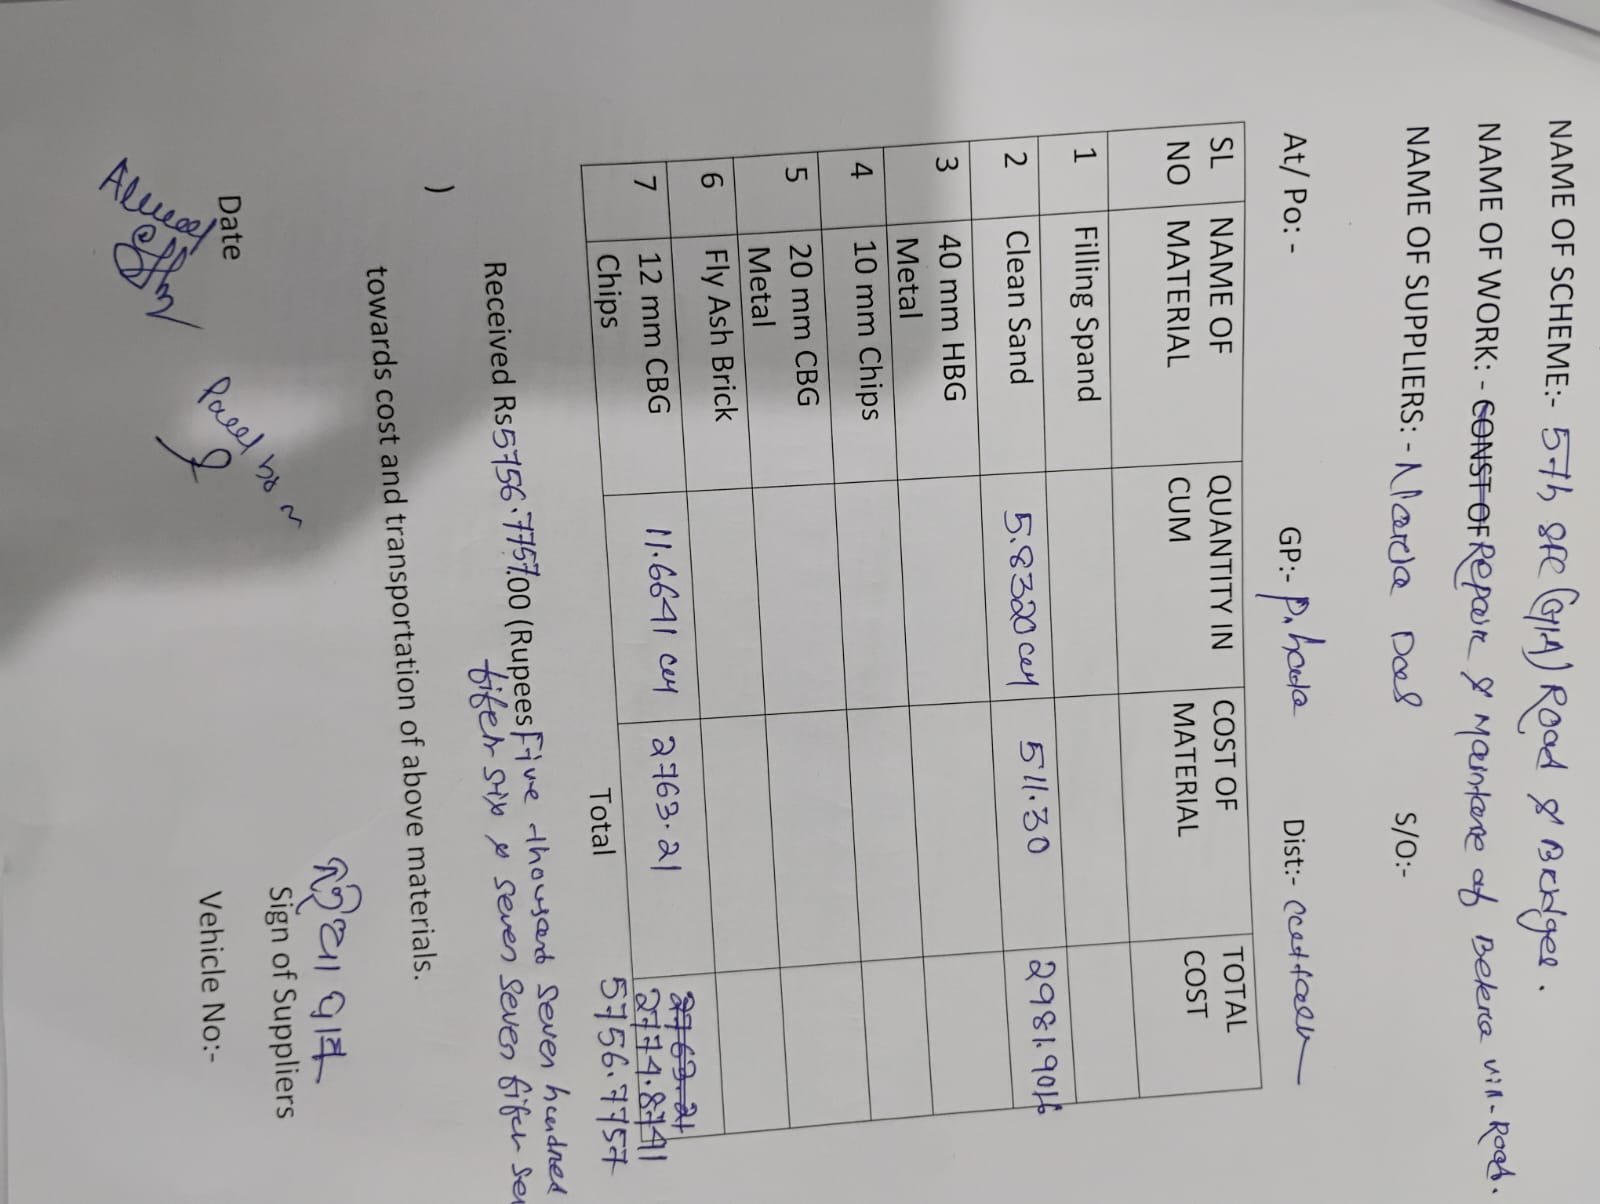 NAME OF SCHEME:- 5th SFC (GIA) Road & Bridges.
NAME OF WORK: - CONST OF Repair & Maintance of Behera vill-Road.
NAME OF SUPPLIERS: - Narda Das S/O:-
At/ Po: - GP:- Dist:-
SL NO NAME OF MATERIAL QUANTITY IN CUM COST OF MATERIAL TOTAL COST
1 Filling Spand
2 Clean Sand 5.8320 cum 511.30 2981.9016
3 40 mm HBG Metal
4 10 mm Chips
5 20 mm CBG Metal
6 Fly Ash Brick
7 12 mm CBG Chips 11.6641 cum 2763.21 2763.21 2774.8741
Total 5756.7757
Received Rs 5756.7757.00 (Rupees Five thousand seven hundred
fifty six & seven seven fifty
)
towards cost and transportation of above materials.
Date
Sign of Suppliers
Vehicle No:-